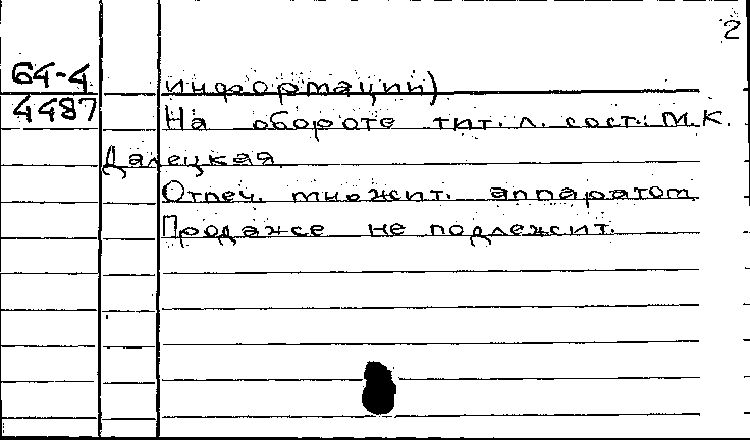 2
64-4 информации)
4487 На обороте тит. л. сост.: М.К.
Далецкая
Отпеч. множит. аппаратом
Продаже не подлежит.